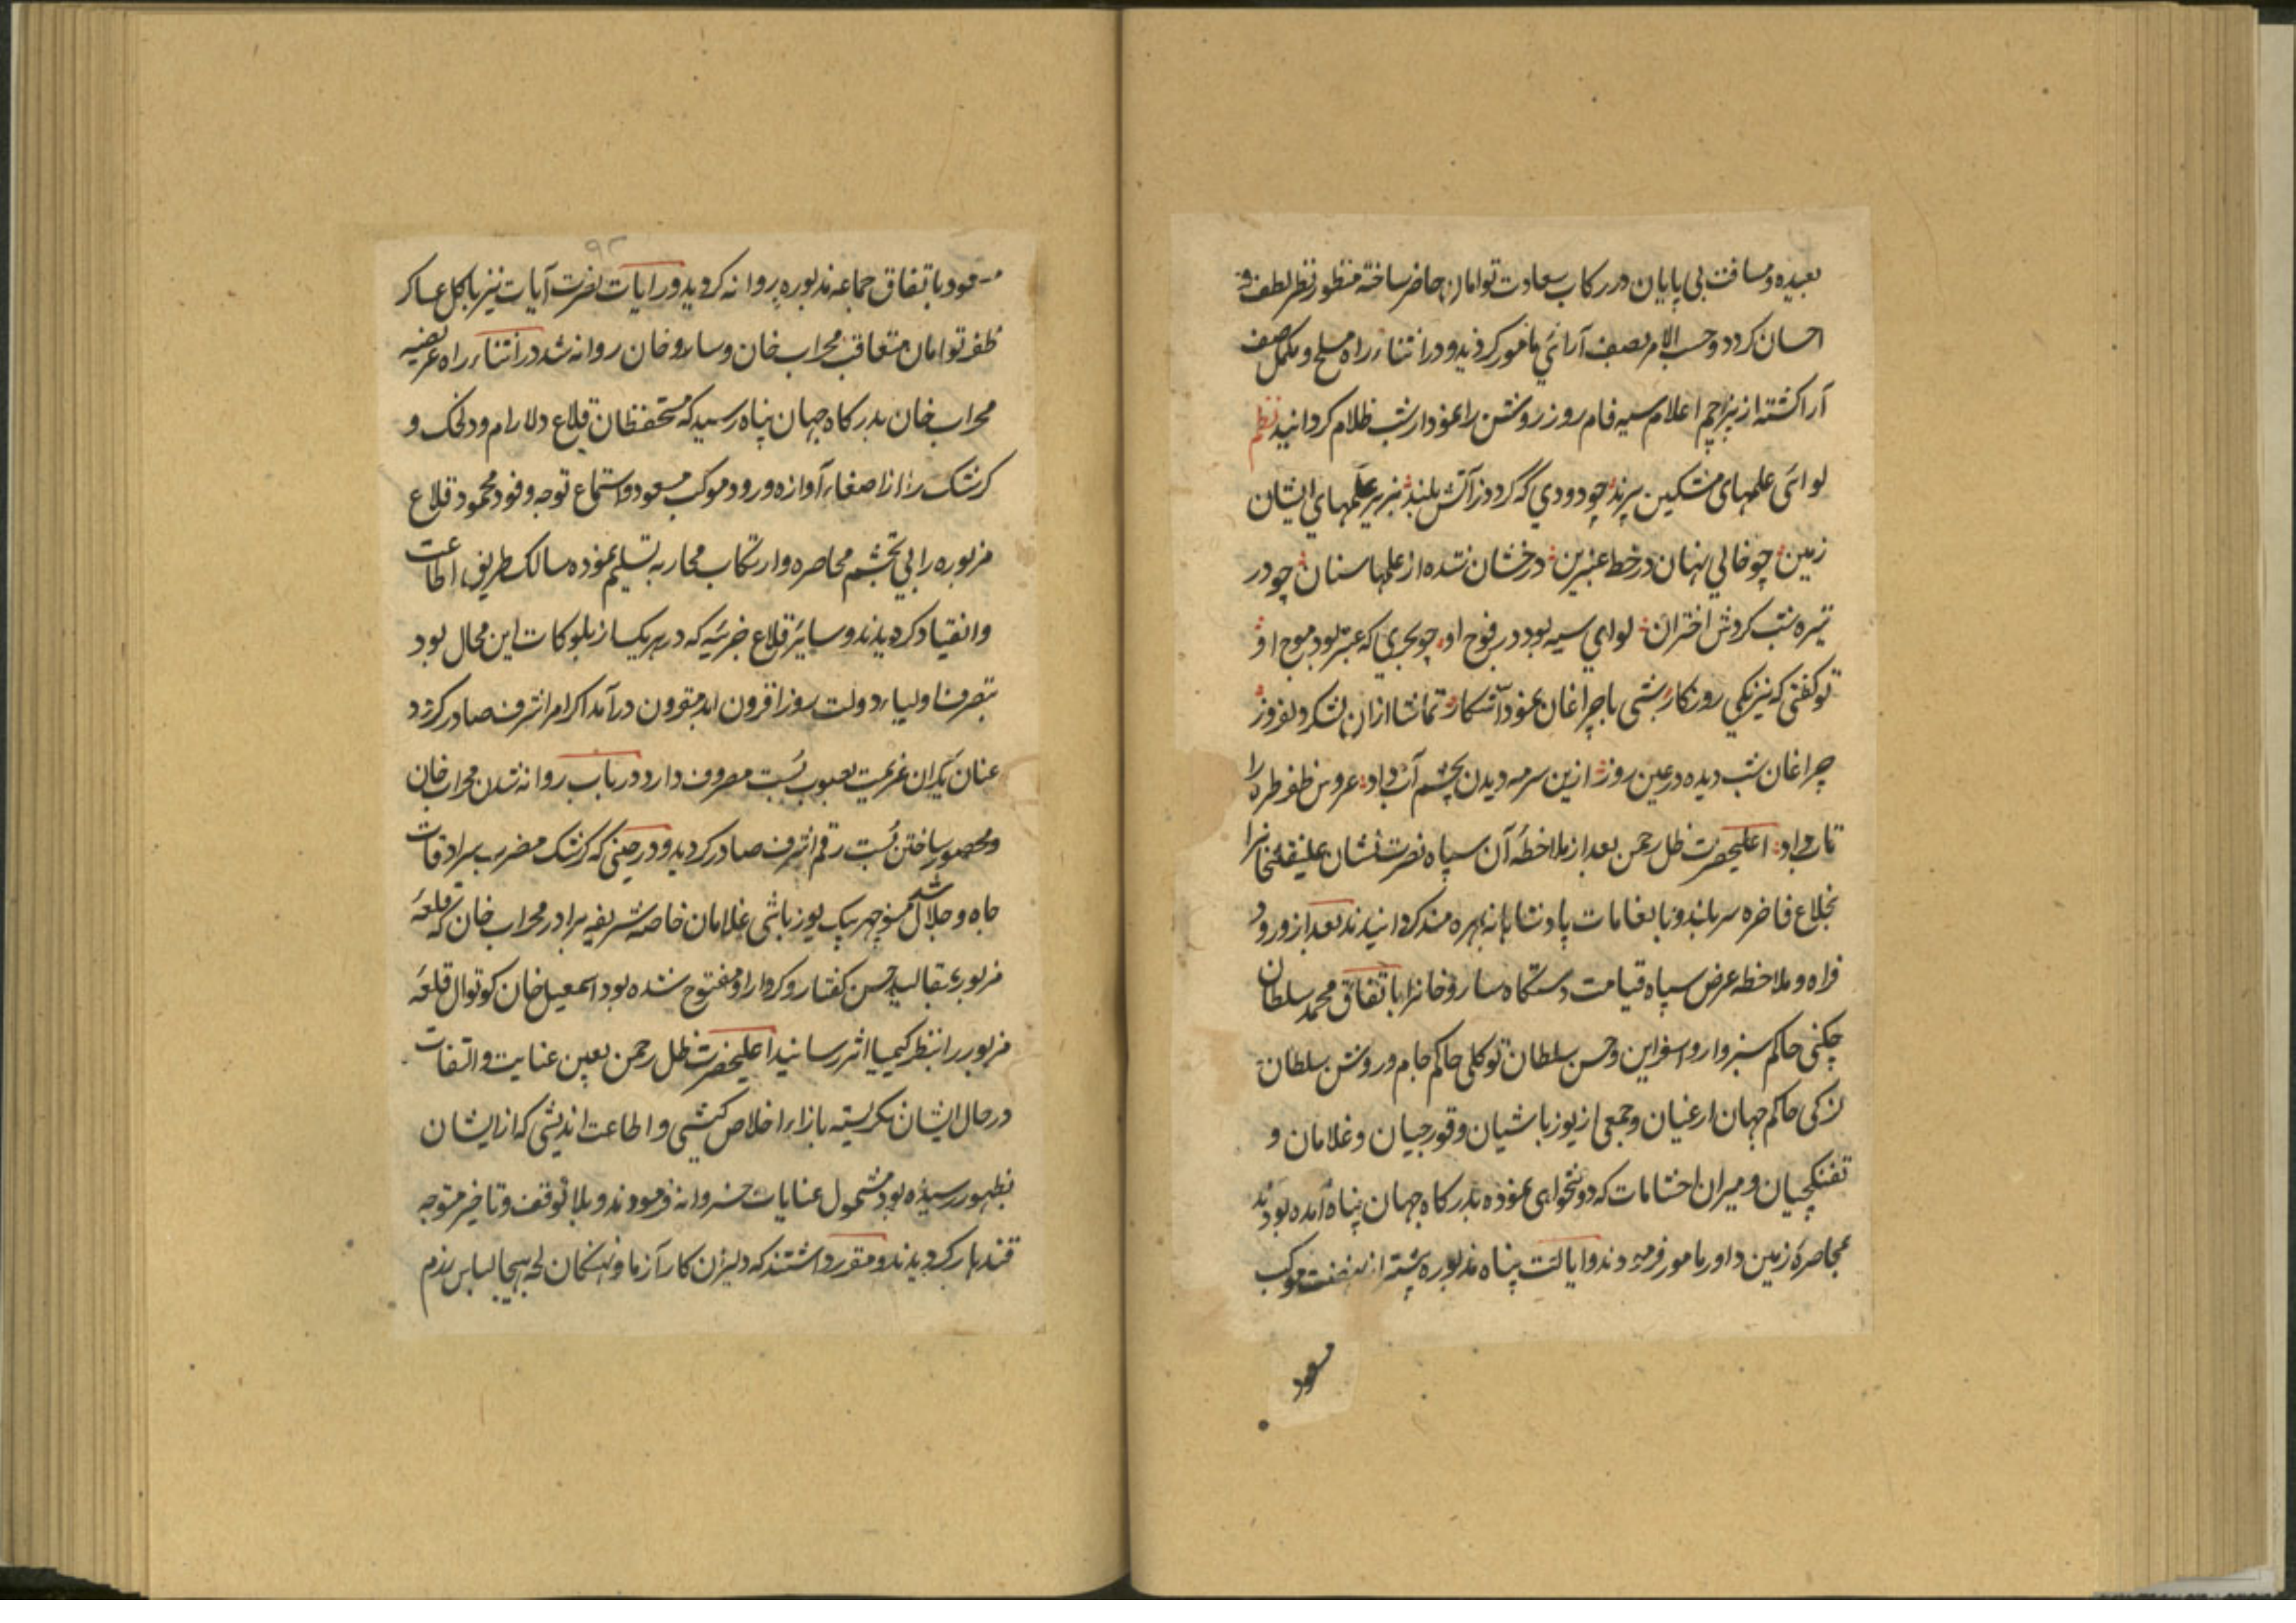 بعیده و مسافت بی پایان در رکاب سعادت توامان حاضر ساخته منظور نظر لطف و
احسان کردد و حسب الامر بصف آرائی مامور کردیدو در اثناء راه مسلح و مکمل صف
آرا کشته از پرچم اعلام سیه فام روز روشن را نمودار شب ظلام کردانید نظم
لوائی علمهای مشکین پرند چو دودی که کردد ز آتش بلند بزیر علمهای ایشان
زمین چو خالی نهان در خط عنبرین درخشان شده از علمها سنان چو در
تیره شب کردش اختران لوای سیه بود در فوج او چو بحری که عنبر بود موج او
تو کفتی که نیرنکی روزکار بشی با چراغان نمود آشکار تماشا ازان لشکر دلفروز
چراغان شب دیده در عین روز ازین سرمه دیدن بچشم آب داد عروس ظفر طره را
تاب داد اعلیحضرت ظل رحمن بعد از ملاحظهٔ آن سپاه نصرت نشان علیقلیخانرا
بخلاع فاخره سر بلند و بانعامات پادشاهانه بهره مند کردانیدند بعد از ورود
فراه و ملاحظه عرض سپاه قیامت دستکاه سارو خانرا باتفاق محمد سلطان
چکنی حاکم سبزوار و اسفراین و حسن سلطان توکلی حاکم جام و روشن سلطان
حاکم جهان ارغیان و جمعی از یوزباشیان و قورچیان و غلامان و
تفنکچیان و میران احشامات که دولتخواهی نموده بدرکاه جهان پناه آمده بودند
بمحاصرهٔ زمین داور مامور فرمودند و ایالت پناه مذبوره پیشتر از نهضت موکب
مسعود
۹۲
مسعود باتفاق جماعه مذبوره روانه کردید و رایات نصرت آیات نیز با کل عساکر
ظفر توامان متعاقب محراب خان و سارو خان روانه شد در اثناء راه عریضه
محراب خان بدرکاه جهان پناه رسید که مستحفظان قلاع دلارام و دلخک و
کرشک را از اصغاء آوازه ورود موکب مسعود و استماع توجه وفود محمود قلاع
مزبوره را بی تجشم محاصره و ارتکاب محاربه تسلیم نموده سالک طریق اطاعت
و انقیاد کردیدند و سایر قلاع جزئیه که در هر یک از بلوکات این محال بود
بتصرف اولیاء دولت روز افزون ابد مقرون در آمد اکر امر اشرف صادر کردد
عنان یکران عزیمت بصوب بُست مصروف دارد در باب روانه شدن محراب خان
و محصور ساختن بُست رقم اشرف صادر کردید و در حینی که کرشک مضرب سرادقات
جاه و جلال شد منوچهر بیک یوزباشی غلامان خاصه شریفه برادر محراب خان که قلعهٔ
مزبور بمقالید حسن کفتار و کردار او مفتوح شده بود اسمعیل خان کوتوال قلعهٔ
مزبور را بنظر کیمیا اثر رسانید اعلیحضرت ظل رحمن بعین عنایت و التفات
در حال ایشان نکریسته بازاء اخلاص کیشی و اطاعت اندیشی که از ایشان
بظهور رسیده بود مشمول عنایات خسروانه فرمودند و بلا توقف و تاخیر متوجه
قندهار کردیدند و مقرر داشتند که دلیران کار آزما و نهنکان لجه هیجا لباس رزم